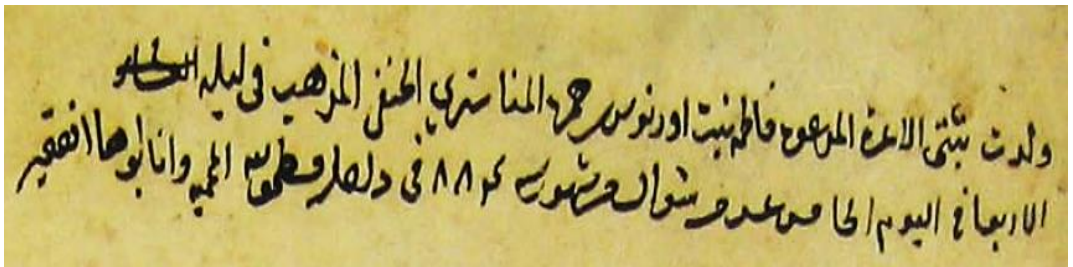 ولدت بنتي الاعزة المدعوة فاطمه بنت اورنوس حمزه المناستري الحنفي المذهب في ليله
الاربعا في اليوم الخامس عشر من شوال من شهور سنه ٨٨٤ في دار قسطنطينيه المحميه وانا ابوها افقر